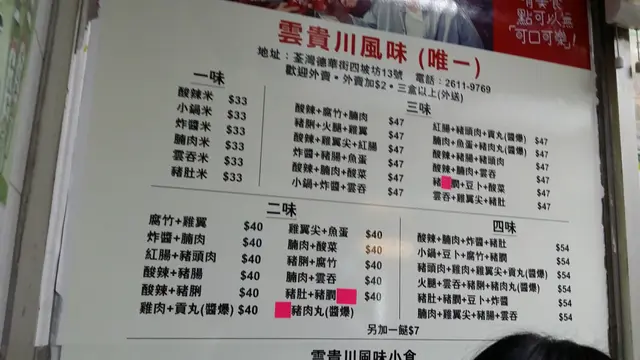 有美食
點可以無
「可口可樂」!
雲貴川風味 (唯一)
地址：荃灣德華街四坡坊13號 電話：2611-9769
歡迎外賣·外賣加$2·三盒以上(外送)
一味
酸辣米 $33
小鍋米 $33
炸醬米 $33
腩肉米 $33
雲吞米 $33
豬肚米 $33
三味
酸辣+腐竹+腩肉 $47
豬脷+火腿+雞翼 $47
酸辣+雞翼尖+紅腸 $47
炸醬+豬腸+魚蛋 $47
酸辣+腩肉+酸菜 $47
小鍋+炸醬+雲吞 $47
紅腸+豬頭肉+貢丸(醬爆) $47
腩肉+魚蛋+豬肉丸(醬爆) $47
酸辣+豬腸+豬頭肉 $47
酸辣+腩肉+雲吞 $47
豬 潤+豆卜+酸菜 $47
雲吞+雞翼尖+豬肚 $47
二味
腐竹+雞翼 $40
炸醬+腩肉 $40
紅腸+豬頭肉 $40
酸辣+豬腸 $40
酸辣+豬脷 $40
雞肉+貢丸(醬爆) $40
雞翼尖+魚蛋 $40
腩肉+酸菜 $40
豬脷+腐竹 $40
腩肉+雲吞 $40
豬肚+豬潤 $40
豬肉丸(醬爆)
四味
酸辣+腩肉+炸醬+豬肚 $54
小鍋+豆卜+腩肉+豬潤 $54
豬頭肉+雞肉+雞翼尖+貢丸(醬爆) $54
火腿+雲吞+豬腸+豬肉丸(醬爆) $54
豬肚+豬潤+豆卜+炸醬 $54
腩肉+雞翼尖+豬腸+雲吞 $54
另加一餸$7
雲貴川風味小食